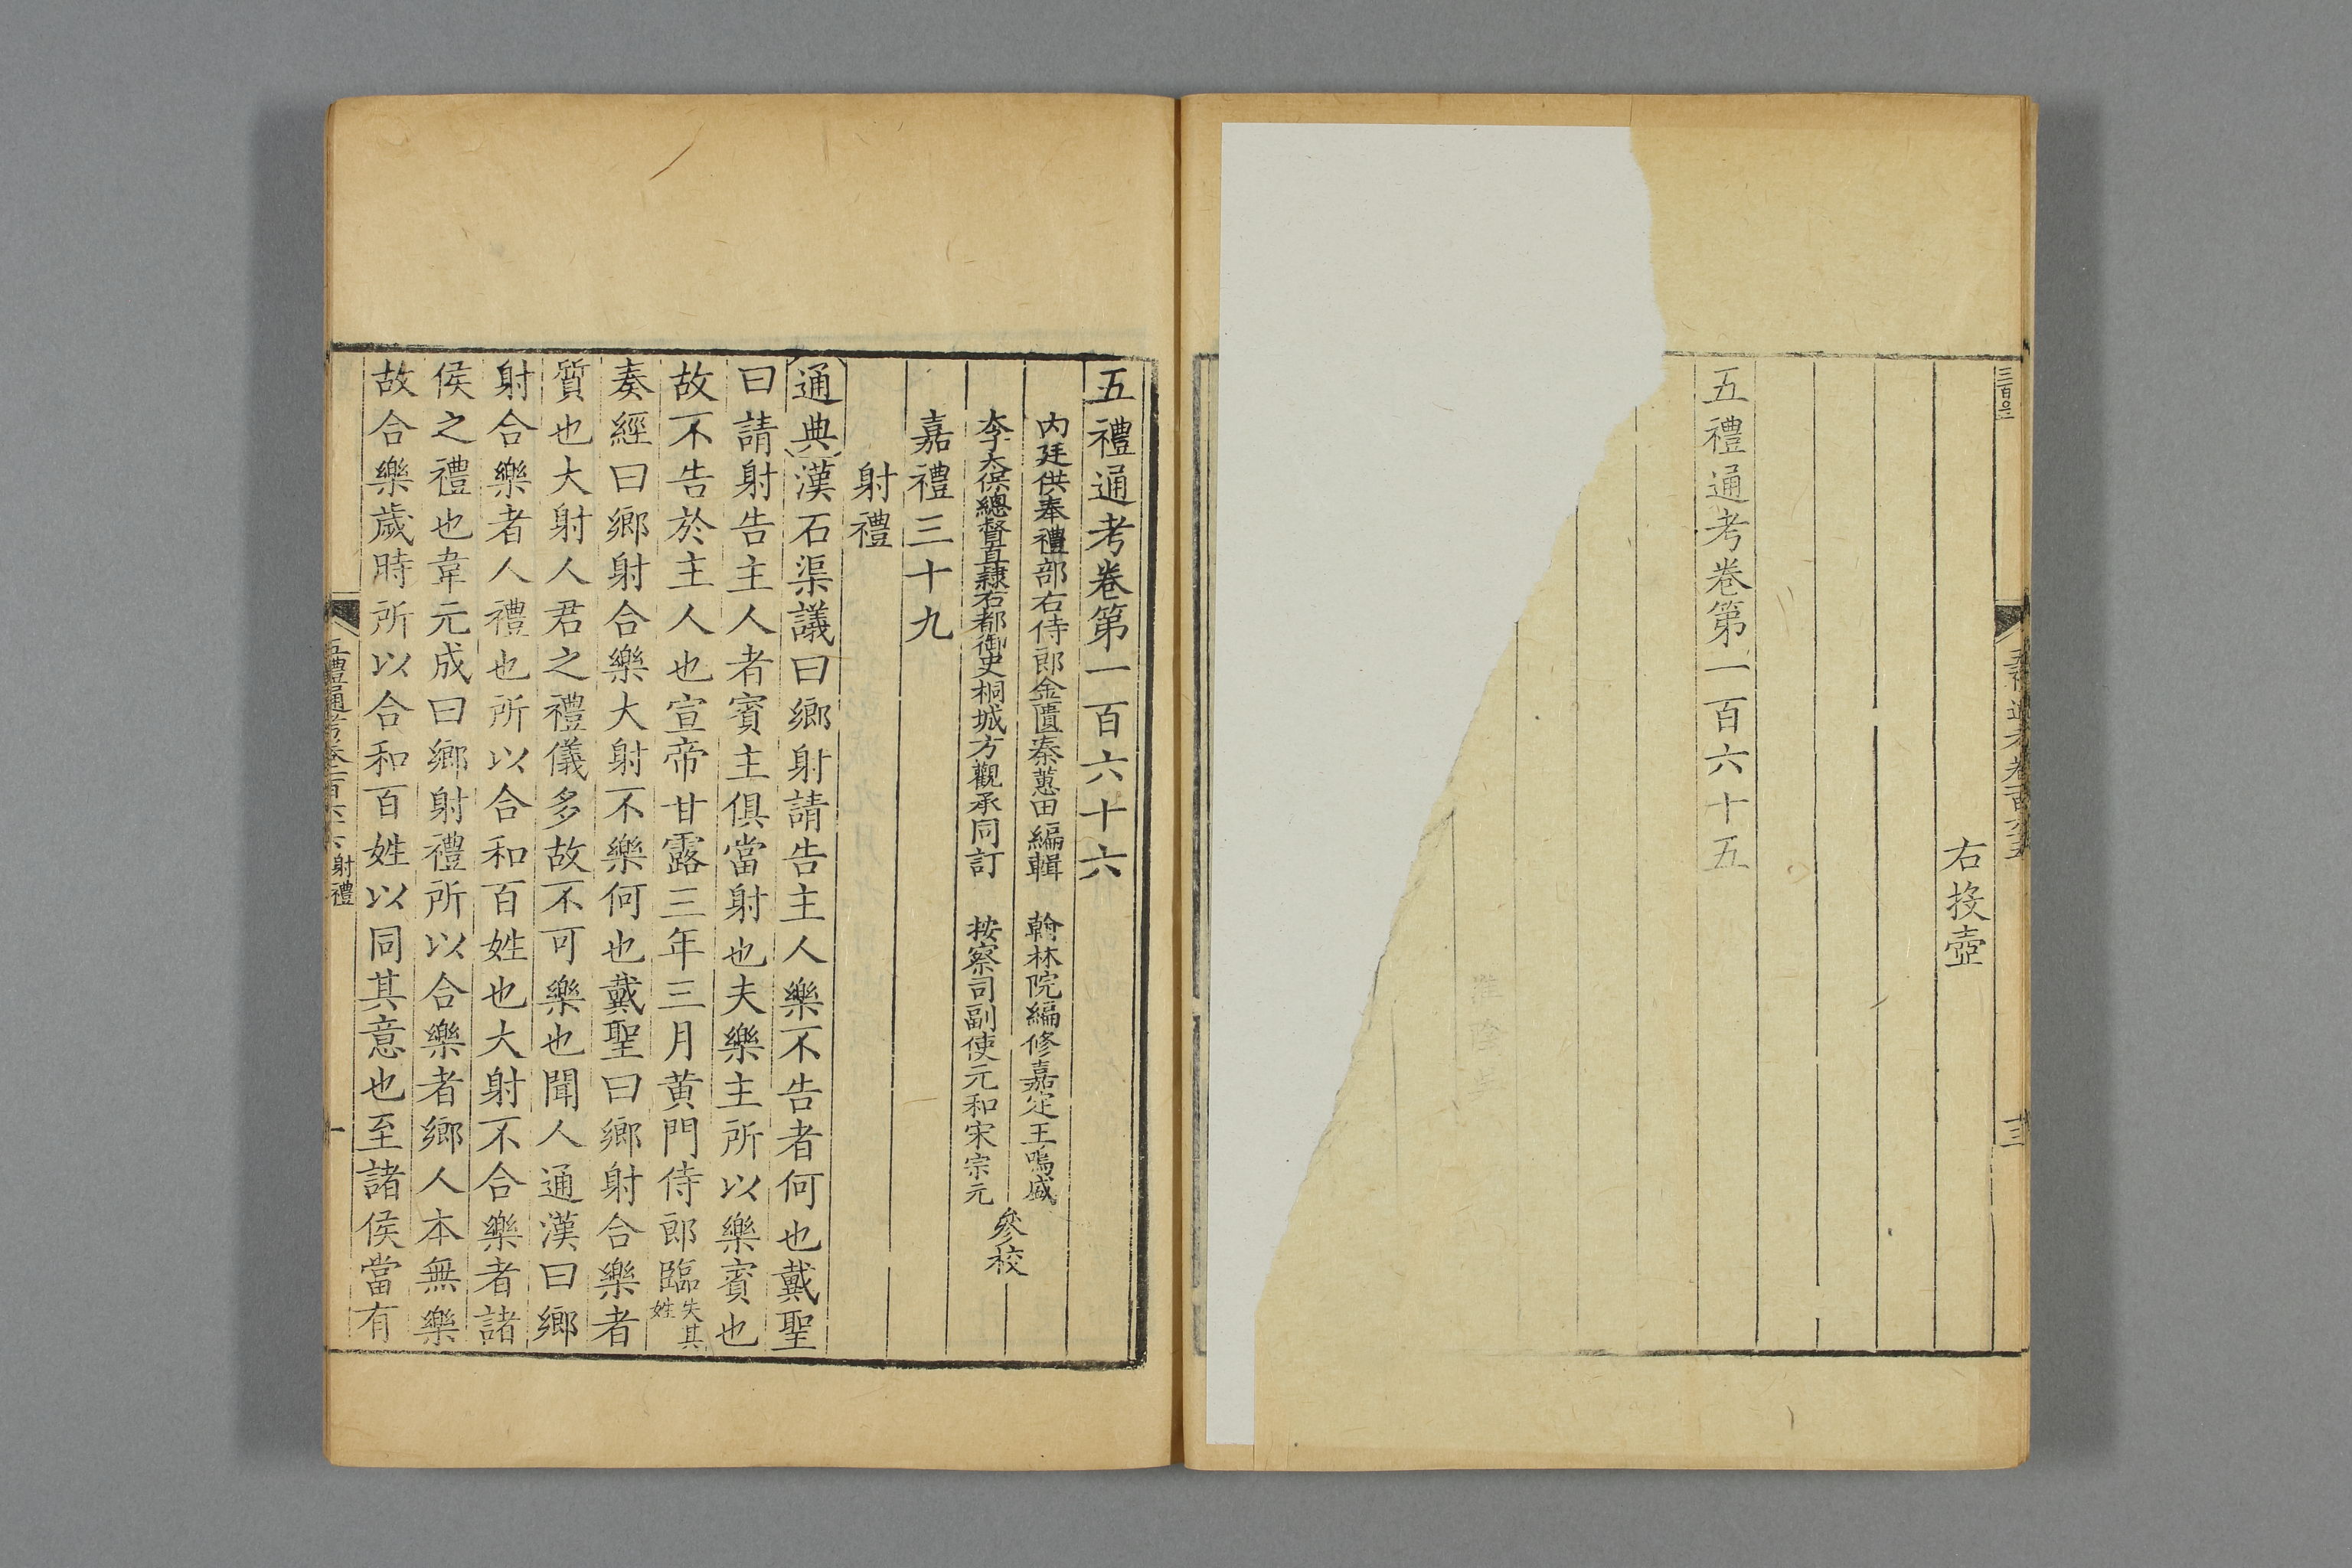 右投壺
五禮通考卷第一百六十五
五禮通考卷第一百六十六
內廷供奉禮部右侍郎金匱秦蕙田編輯 翰林院編修嘉定王鳴盛
太子太保總督直隸右都御史桐城方觀承同訂 按察司副使元和宋宗元
參校
嘉禮三十九
射禮
通典漢石渠議曰鄉射請告主人樂不告者何也戴聖
曰請射告主人者賓主俱當射也夫樂主所以樂賓也
故不告於主人也宣帝甘露三年三月黃門侍郎臨失其姓
奏經曰鄉射合樂大射不樂何也戴聖曰鄉射合樂者
質也大射人君之禮儀多故不可樂也聞人通漢曰鄉
射合樂者人禮也所以合和百姓也大射不合樂者諸
侯之禮也韋元成曰鄉射禮所以合樂者鄉人本無樂
故合樂歲時所以合和百姓以同其意也至諸侯當有
五禮通考卷一百六十六 射禮 一